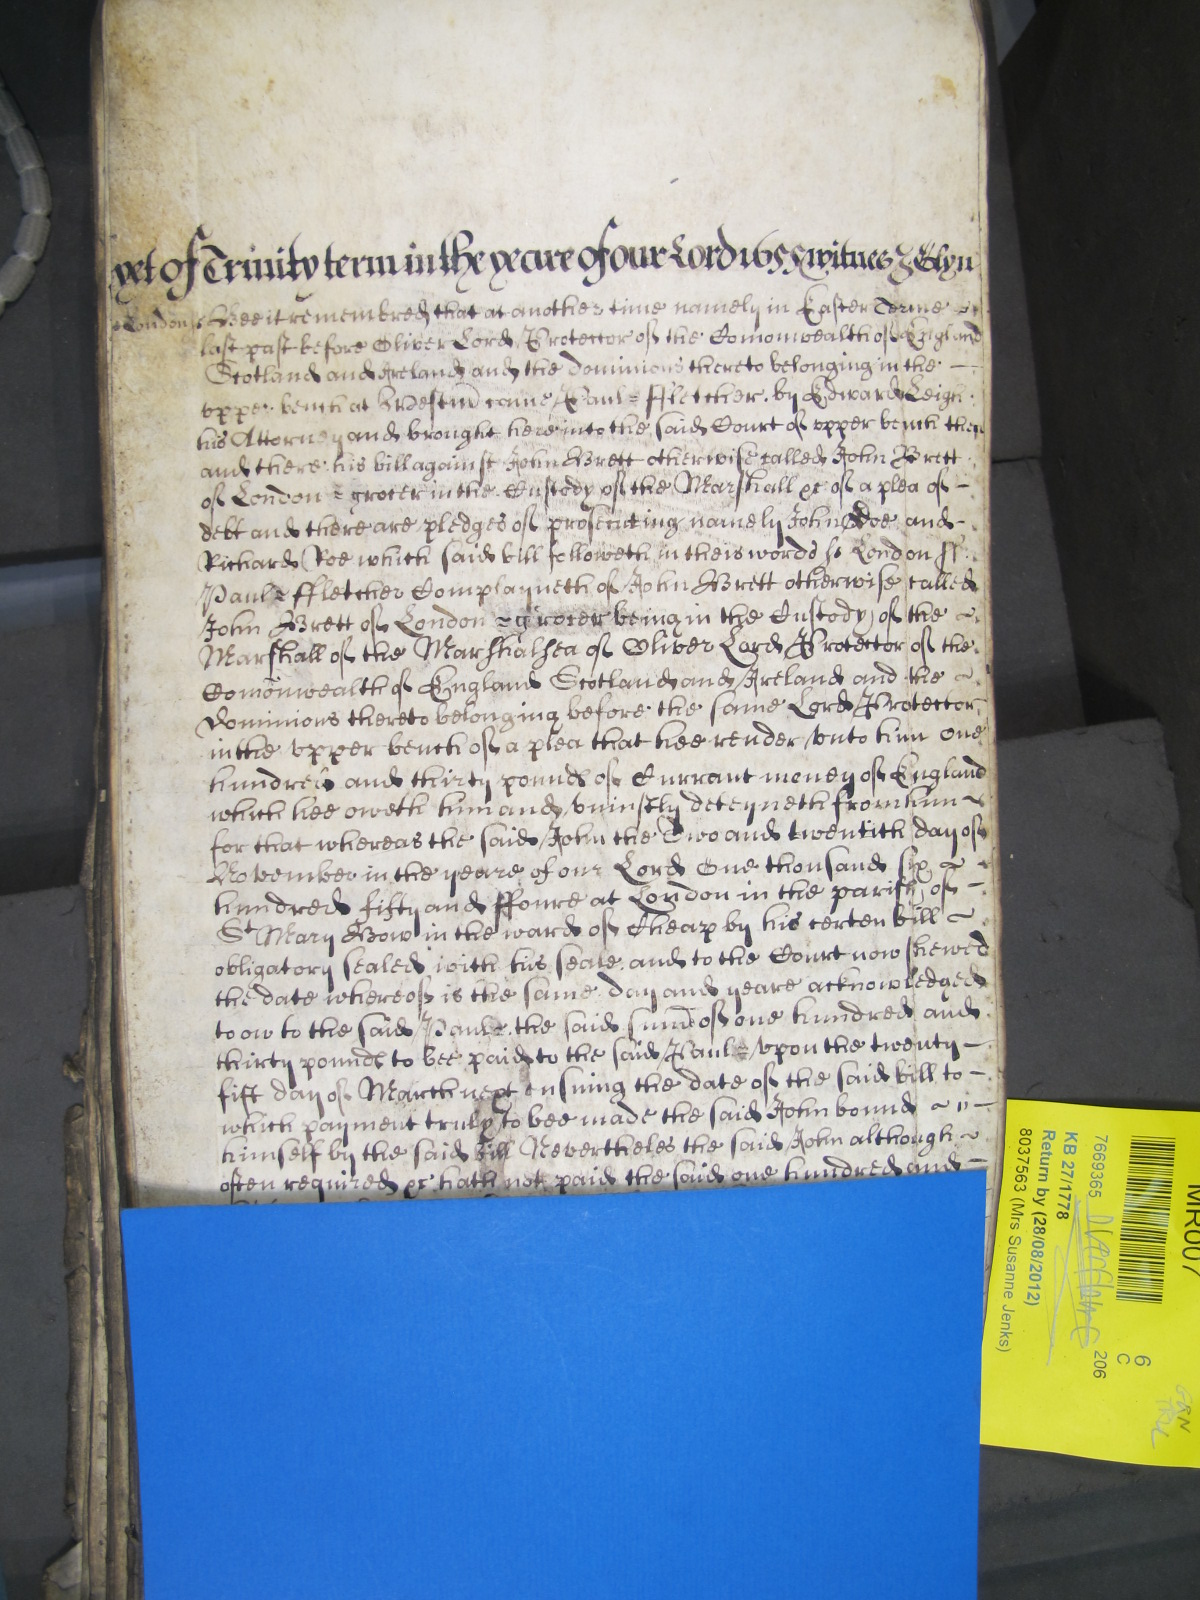 yet of Trinity term in the yeare of our Lord 1655 witnes J Glyn
London ss Bee it remembred that at another time namely in Easter Terme
last past before Oliver Lord Protector of the Comonwealth of England
Scotland and Ireland and the dominions thereto belonging in the
upper bench at Westm came Paul ffletcher by Edward Leigh
his Attorney and brought here into the said Court of upper bench then
and there his bill against John Brett otherwise called John Brett
of London grocer in the Custody of the Marshall &c of a plea of
debt and there are pledges of prosecuting namely John Doe and
Richard Roe which said bill followeth in theis words ss London ss
Paul ffletcher Complayneth of John Brett otherwise called
John Brett of London grocer being in the Custody of the
Marshall of the Marshalsea of Oliver Lord Protector of the
Comonwealth of England Scotland and Ireland and the
Dominions thereto belonging before the same Lord Protector
in the upper bench of a plea that hee render unto him one
hundred and thirty pounds of Currant money of England
which hee oweth him and uniustly deteyneth from him
for that whereas the said John the Two and twentith day of
November in the yeare of our Lord One thousand six
hundred fifty and ffoure at London in the parish of
St Mary Bow in the ward of Cheap by his certen bill
obligatory sealed with his seale and to the Court now shewed
the date whereof is the same day and yeare acknowledged
to ow to the said Paul the said sum of one hundred and
thirty pounds to bee paid to the said Paul upon the twenty
fift day of March next ensuing the date of the said bill to
which payment truly to bee made the said John bound
himself by the said bill Nevertheles the said John although
often required &c hath not paid the said one hundred and
MR007
6
C
7669365
206
KB 27/1778
Return by (28/08/2012)
8037563 (Mrs Susanne Jenks)